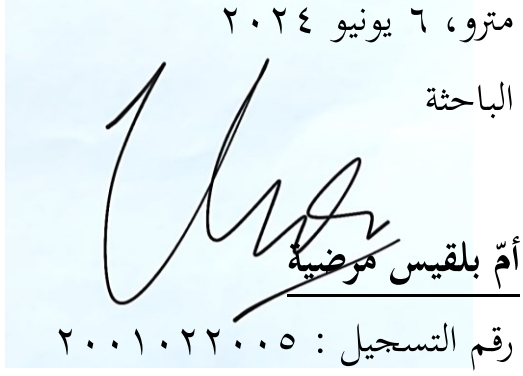 مترو، ٦ يونيو ٢٠٢٤
الباحثة
أمّ بلقيس مرضية
رقم التسجيل : ٢٠٠١٠٢٢٠٠٥